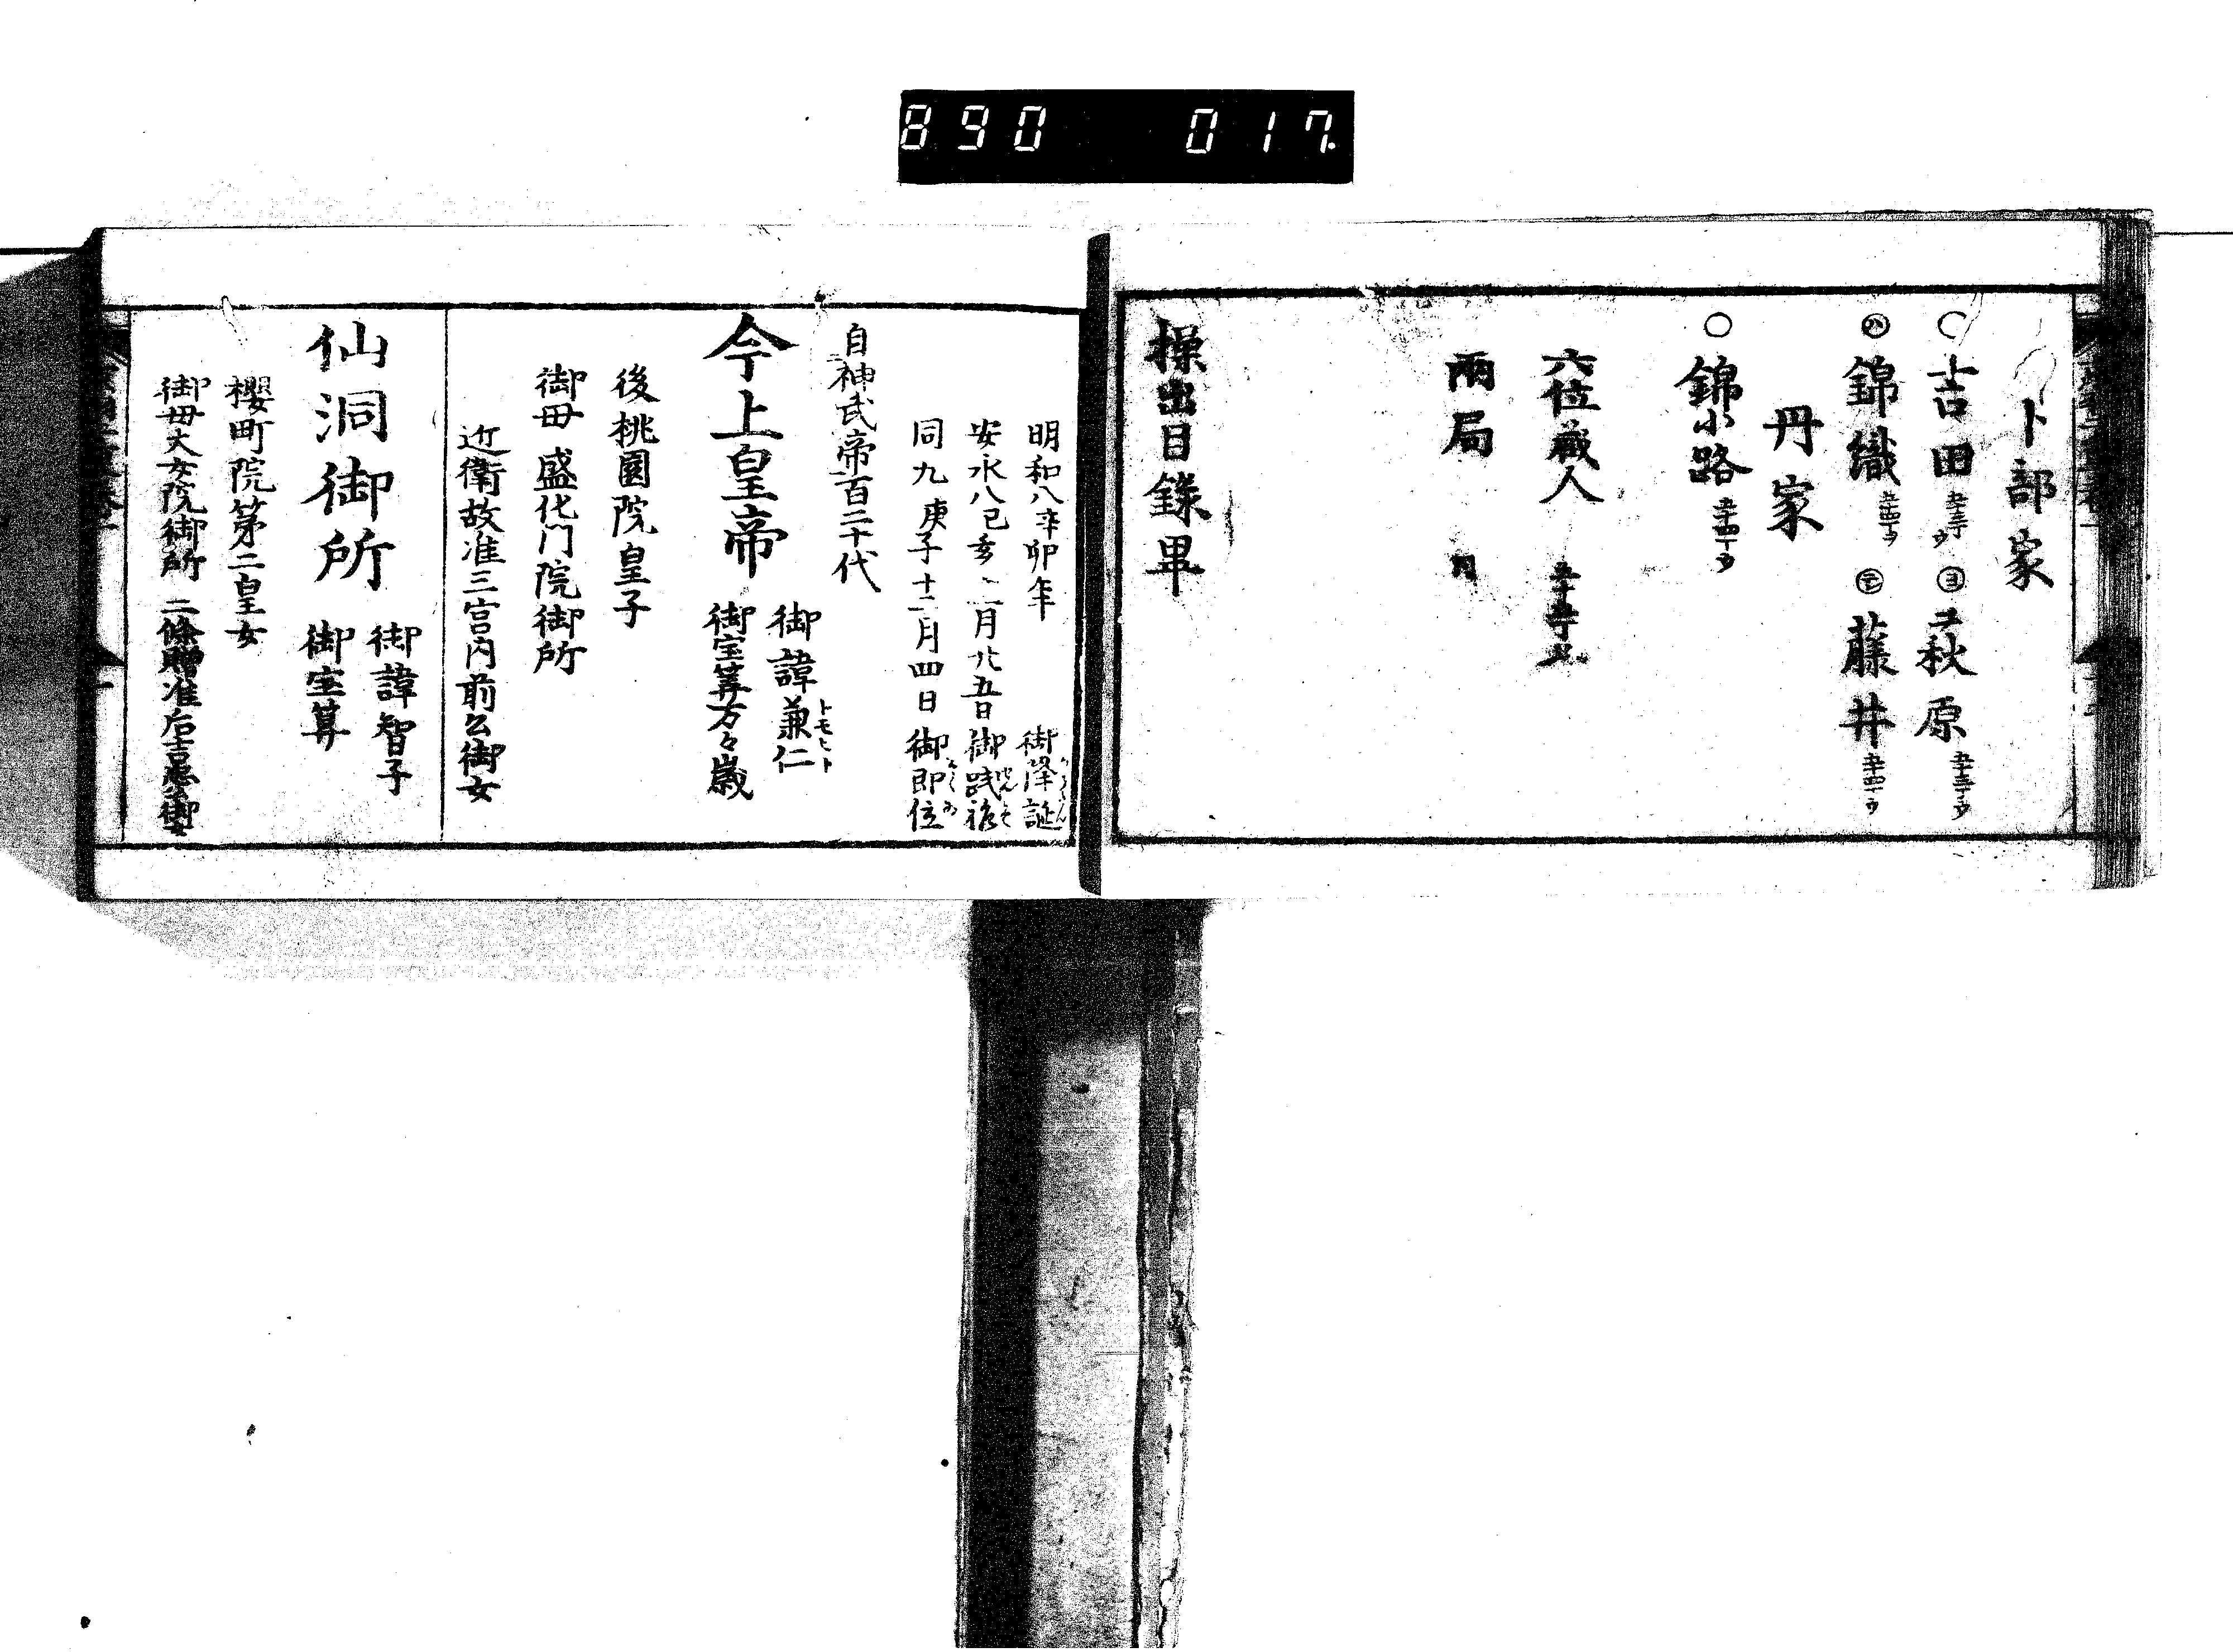 890 017
卜部家
○吉田 五十三丁ウ ㋵萩原 五十三丁ウ
㋩錦織 五十四丁ウ ㋢藤井 五十四丁ウ
丹家
○錦小路 五十四丁ウ
六位蔵人
兩局
操出目録畢
明和八辛卯年 御降誕
安永八己亥十一月廿五日御践祚
同九庚子十二月四日御即位
自神武帝百二十代
今上皇帝 御諱兼仁トモヒト
御宝算万々歳
後桃園院皇子
御母 盛化门院御所
近衛故准三宮内前公御女
仙洞御所 御諱智子
御宝算
櫻町院第二皇女
御母大女院御所 二條贈准后吉忠公御女